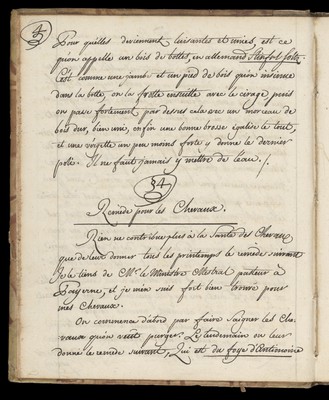 45
Pour quelles deviennent luisantes et unies, est ce
qu'on appelle un bois de bottes, en allemand
C'est comme une jambe et un pied de bois qu'on enfonce
dans la botte, on la frotte ensuitte avec le cirage puis
on passe fortement par dessus cela avec un morceau de
bois dur, bien unie, enfin une bonne brosse égalise le tout,
et une vergette un peu moins forte y donne le dernier
poli. Il ne faut jamais y mettre de l'eau. /.
54
Remède pour les Chevaux.
Rien ne contribue plus à la Santé des Chevaux
que de leur donner tous les printemps le remède suivant
Je le tiens de Mr. le Ministre Mestral pasteur à
Payerne, et je m'en suis fort bien trouvé pour
mes Chevaux.
On commence d'abord par faire saigner les Che
vaux qu'on veut purger. Le lendemain on leur
donne le remède suivant, Qui est du foye d'Antimoine